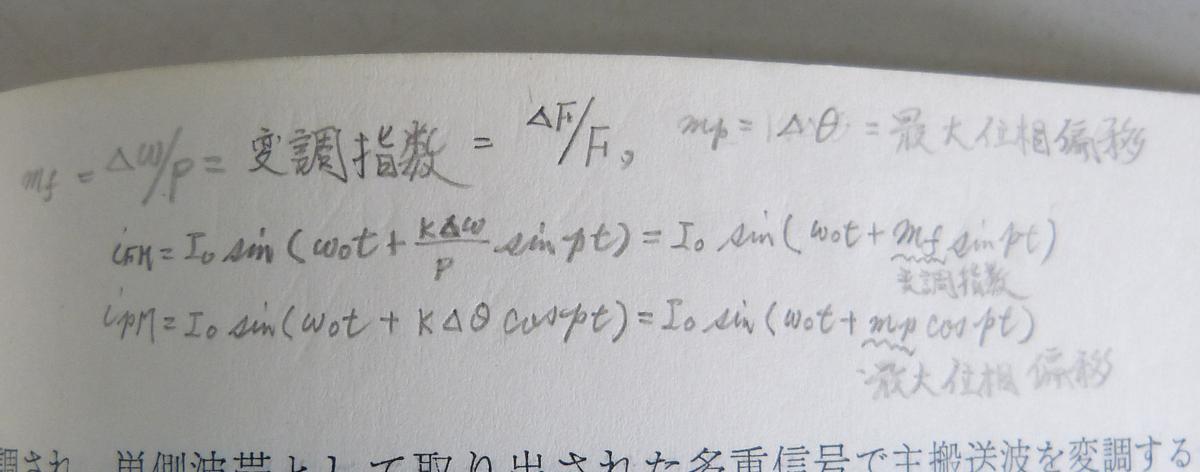 mf = Δω/p = 変調指数 = ΔF/F, mp = Δθ = 最大位相偏移
iFM = I₀ sin (ω₀t + KΔω/p sin pt) = I₀ sin (ω₀t + mf sin pt)
変調指数
iPM = I₀ sin (ω₀t + KΔθ cos pt) = I₀ sin (ω₀t + mp cos pt)
最大位相偏移
調され、単側波帯として取り出された多重信号で主搬送波を変調する